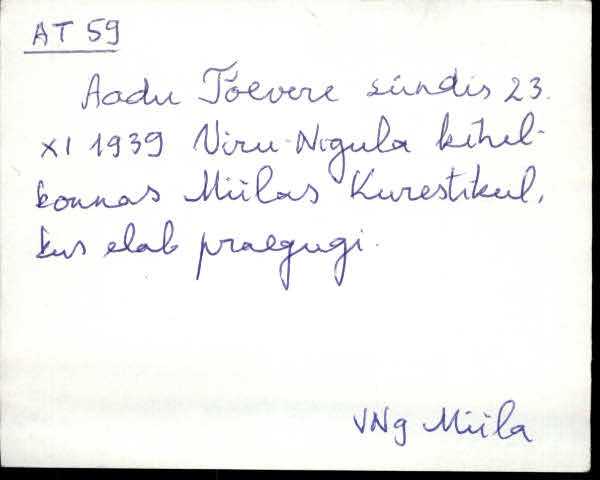 AT 59
Aadu Tõevere sündis 23.
XI 1939 Viru-Nigula kihel-
konnas Miilas Kurestikul,
kus elab praegugi.
VNg Miila